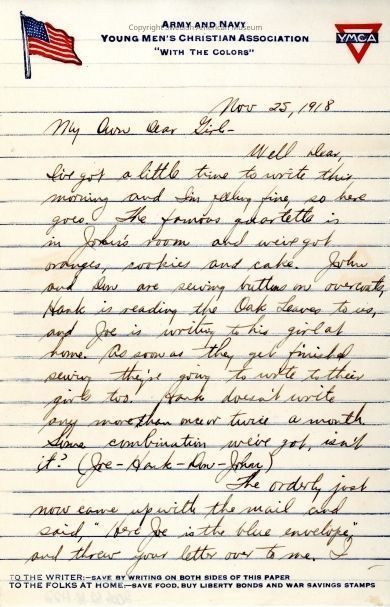 Copyright Swenson American Museum
ARMY AND NAVY
YOUNG MEN'S CHRISTIAN ASSOCIATION
"WITH THE COLORS"
YMCA
Nov 25, 1918
My Own Dear Girl-
Well Dear,
I've got a little time to write this
morning and I'm feeling fine, so here
goes. The famous quartette is
in John's room and we've got
oranges, cookies and cake. John
and Don are sewing buttons on overcoats,
Hank is reading the Oak Leaves to us,
and Joe is writing to his girl at
home. As soon as they get finished
sewing they're going to write to their
girls too. Hank doesn't write
any more than once or twice a month.
Some combination we've got, isn't
it? (Joe-Hank-Don-John)
The orderly just
now came up with the mail and
said, "Here Joe is the blue envelope"
and threw your letter over to me. I
TO THE WRITER:-SAVE BY WRITING ON BOTH SIDES OF THIS PAPER
TO THE FOLKS AT HOME:-SAVE FOOD, BUY LIBERTY BONDS AND WAR SAVINGS STAMPS